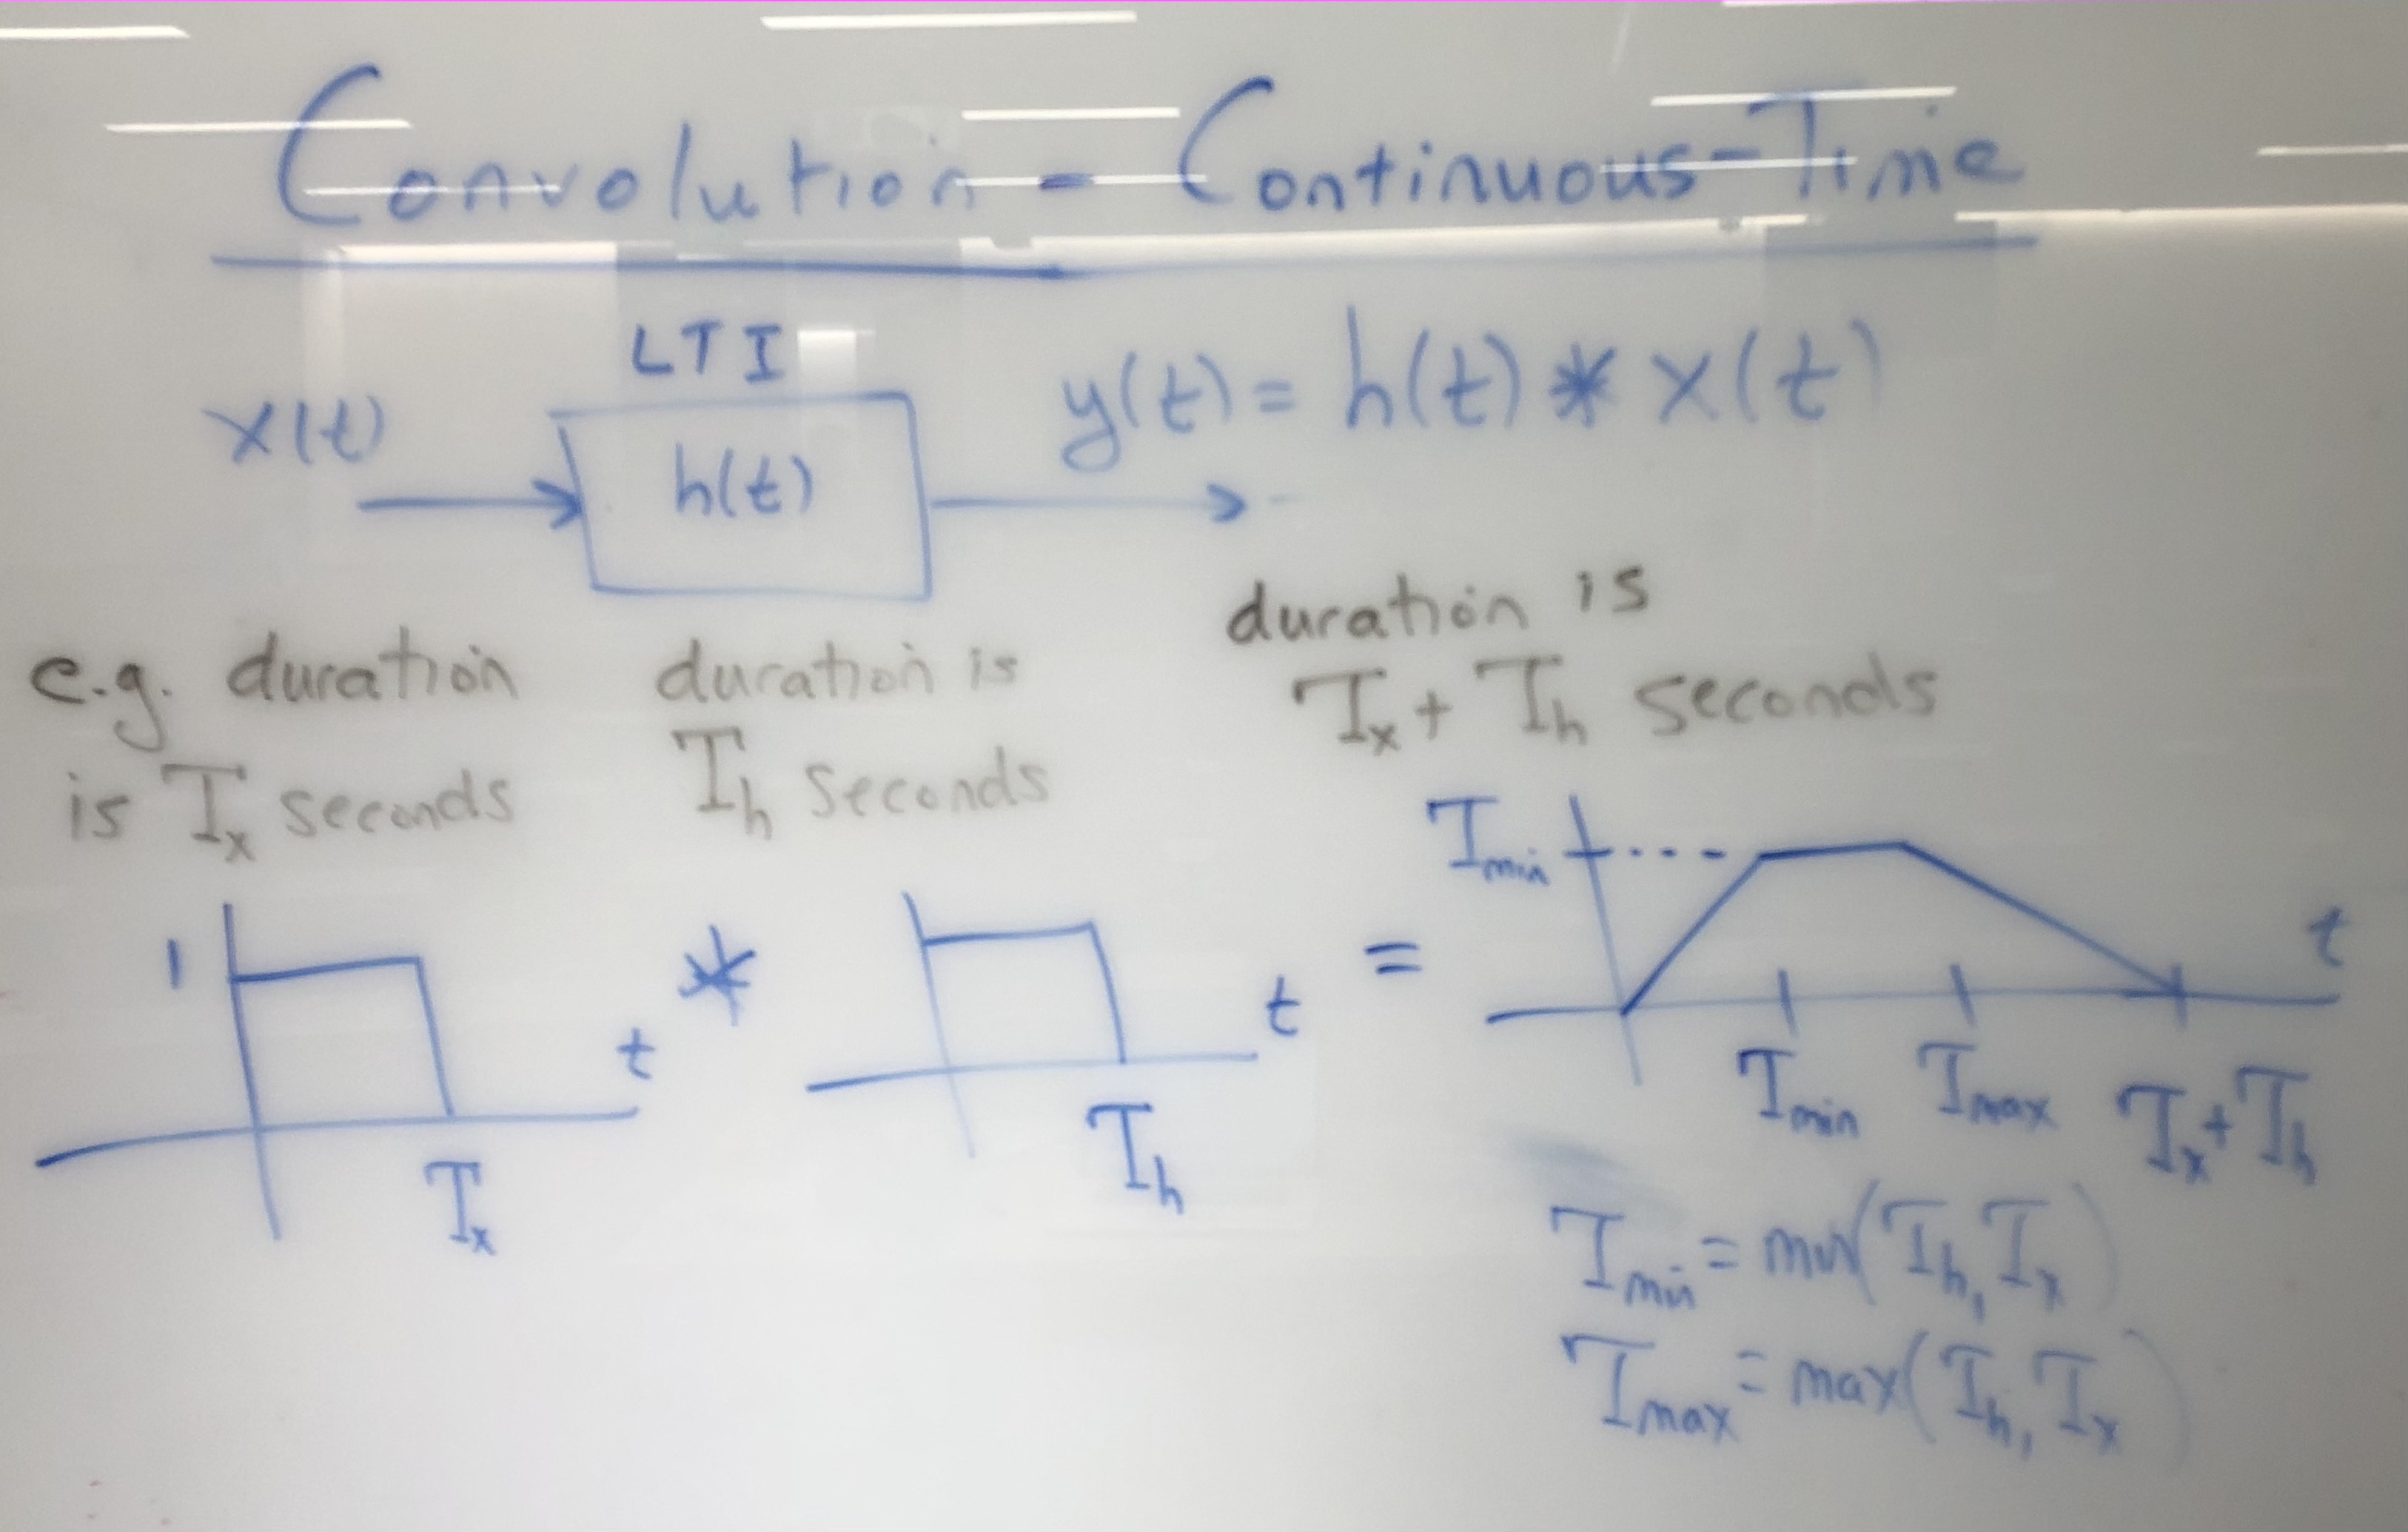 Convolution - Continuous-Time
LTI
x(t)
h(t)
y(t) = h(t) * x(t)
e.g. duration
is Tx seconds
duration is
Th seconds
duration is
Tx + Th seconds
1
t
Tx
*
t
Th
=
Tmin
t
Tmin Tmax Tx+Th
Tmin = min(Th, Tx)
Tmax = max(Th, Tx)